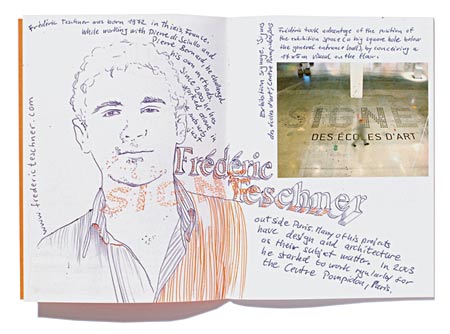 Frédéric Teschner was born 1972 in Thiais, France.
While working with Pierre di Sciullo and
Pierre Bernard, he developed
his own method.
Since 2002 he has
worked
www.fredericteschner.com
SIGNE
Frédéric
Teschner
Exhibition signage, Signes
des écoles d'art, Centre Pompidou
Frédéric took advantage of the position of
the exhibition space (a big square hole below
the general entrance hall), by conceiving a
17x17m visual on the floor.
SIGNE
DES ÉCOLES D'ART
outside Paris. Many of his projects
have design and architecture
as their subject matter. In 2003
he started to work regularly for
the Centre Pompidou, Paris.